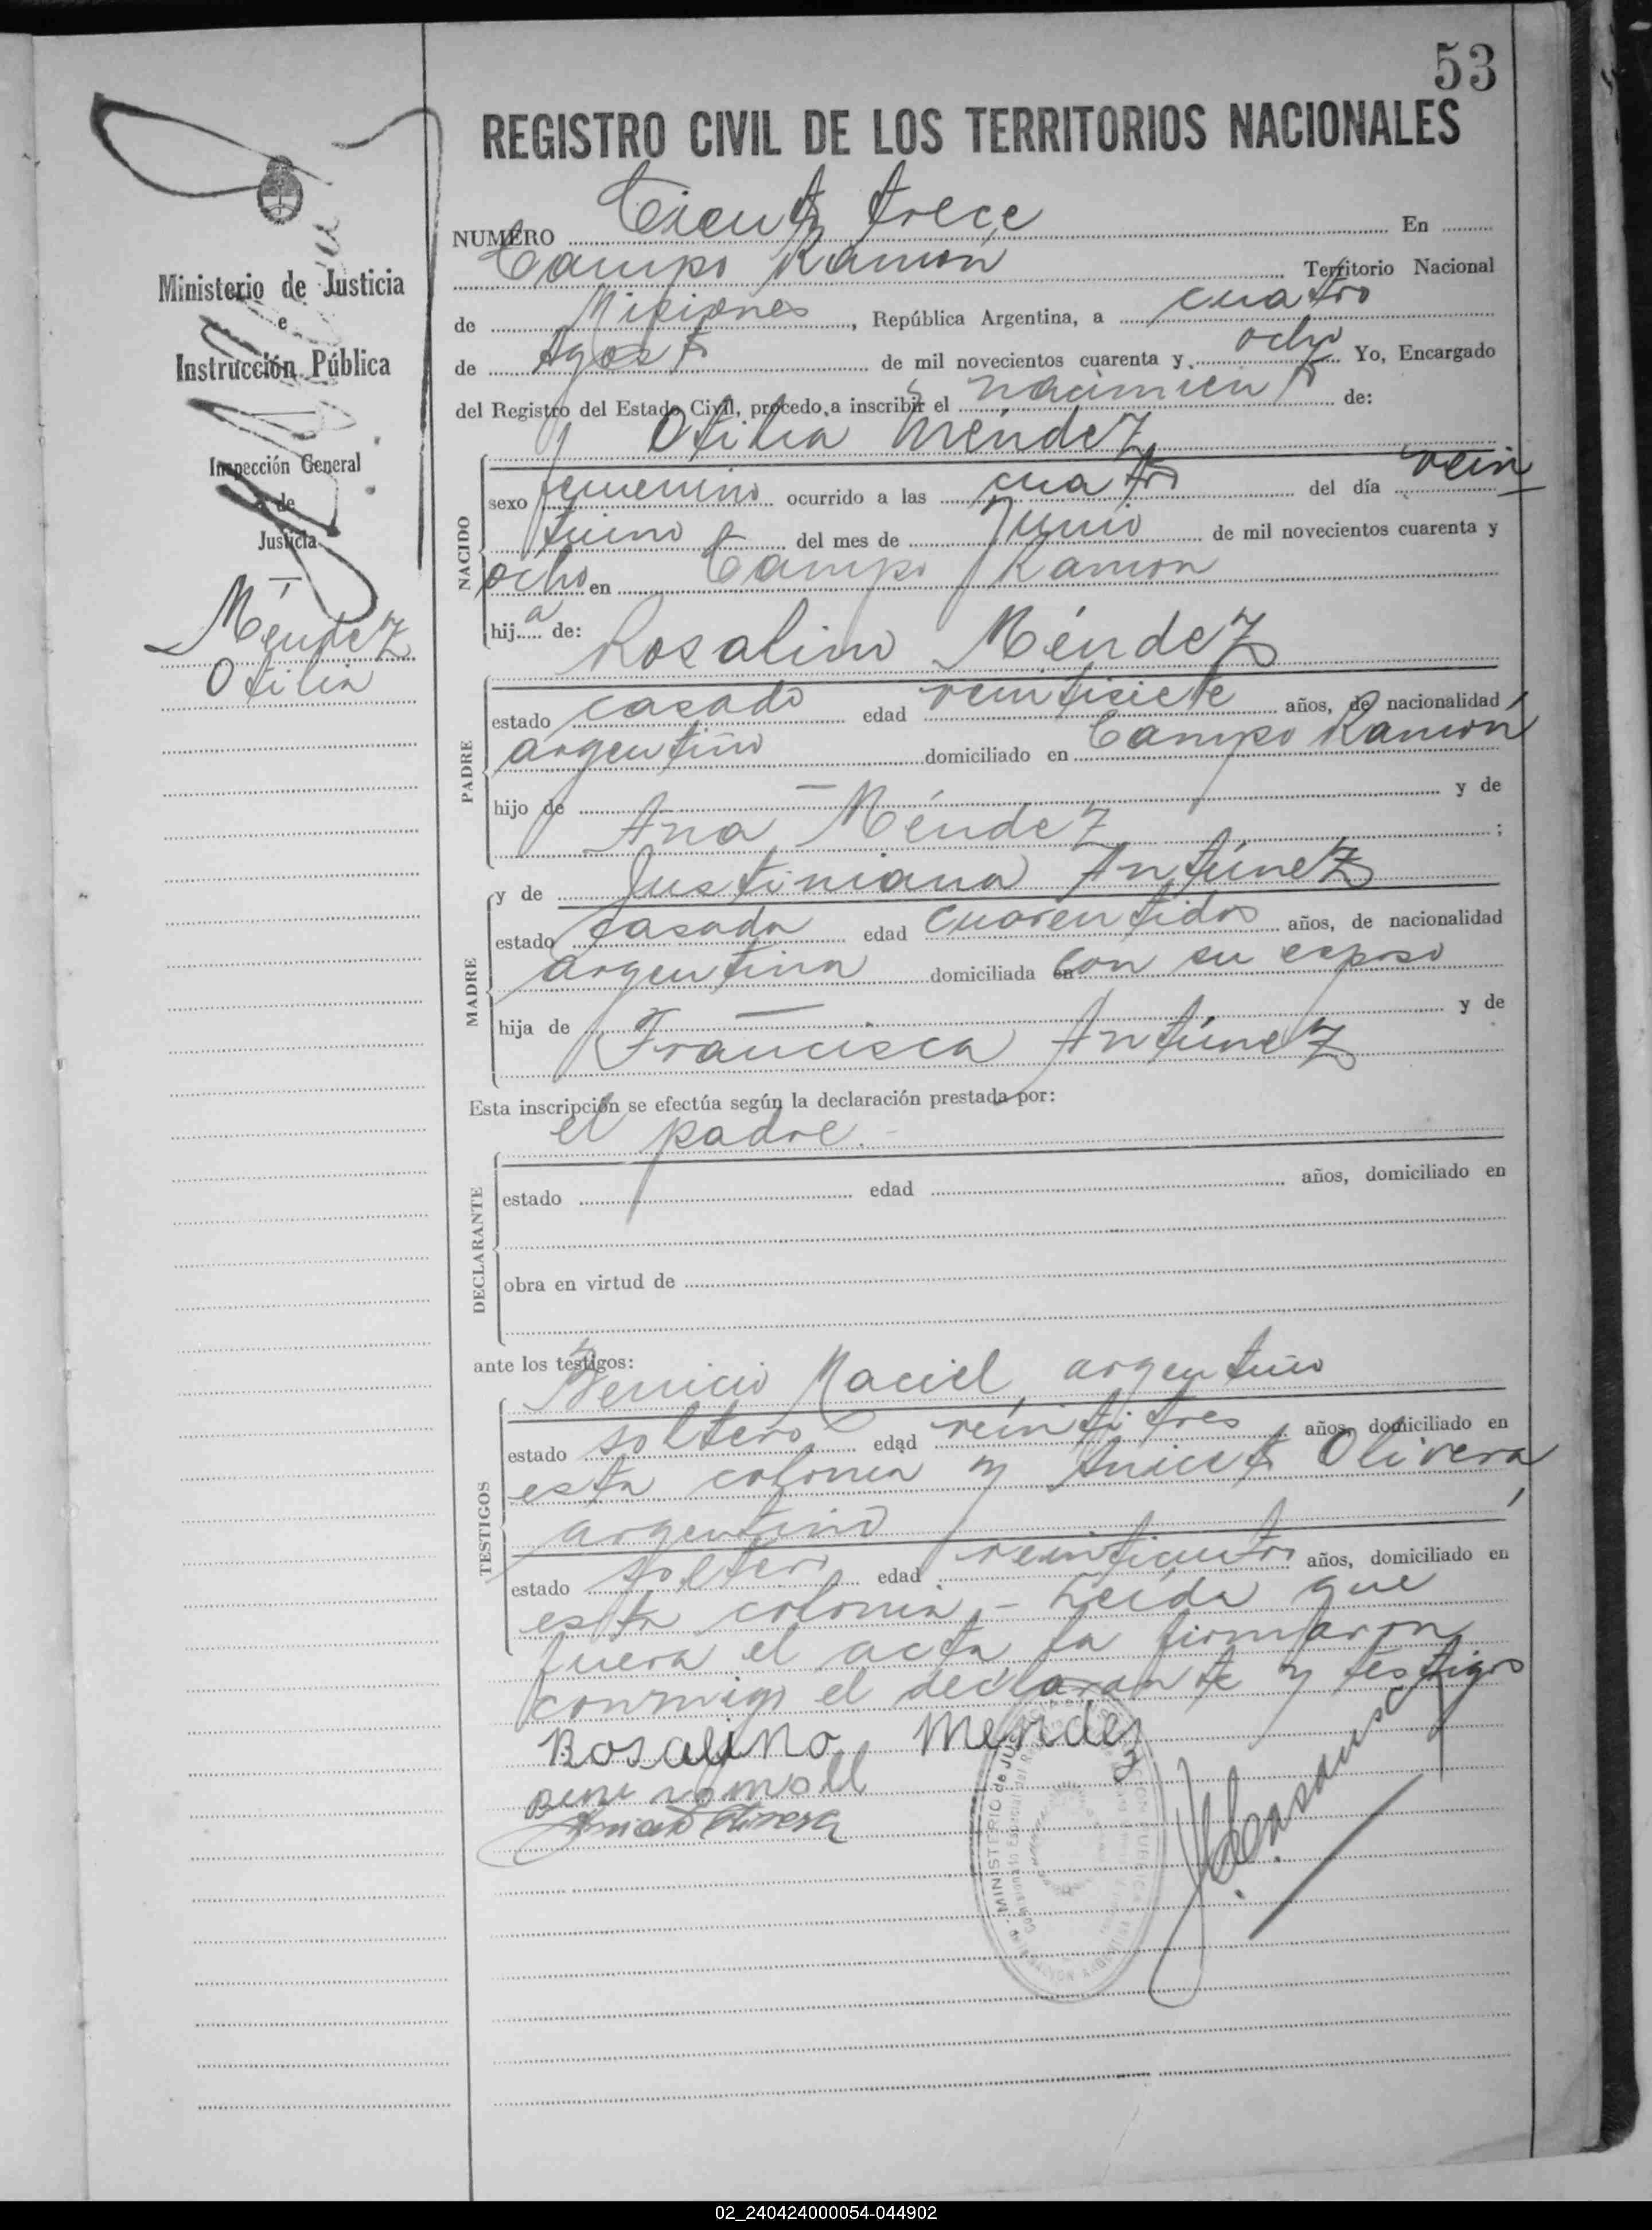 53
REGISTRO CIVIL DE LOS TERRITORIOS NACIONALES
NUMERO Ciento trece En
Campo Ramón Territorio Nacional
de Misiones, República Argentina, a cuatro
de Agosto de mil novecientos cuarenta y ocho Yo, Encargado
del Registro del Estado Civil, procedo a inscribir el nacimiento de:
Otilia Méndez
NACIDO
sexo femenino ocurrido a las cuatro del día vein
tiuno del mes de Junio de mil novecientos cuarenta y
ocho en Campo Ramon
hija de: Rosalino Méndez
PADRE
estado casado edad veintisiete años, de nacionalidad
argentino domiciliado en Campo Ramón
hijo de — y de
Ana Méndez ;
y de Justiniana Antúnez
MADRE
estado casada edad cuarentidos años, de nacionalidad
argentina domiciliada en con su esposo
hija de — y de
Francisca Antúnez
Esta inscripción se efectúa según la declaración prestada por:
el padre.-
DECLARANTE
estado edad años, domiciliado en
obra en virtud de
ante los testigos:
Maciel, argentino
TESTIGOS
estado soltero edad veintitres años, domiciliado en
esta colonia y Aniceto Olivera
argentino
estado soltero edad veinticuatro años, domiciliado en
esta colonia.- Leída que
fuera el acta la firmaron
conmigo el declarante y testigos
Rosalino Mendez
Aniceto Olivera
MINISTERIO de JUSTICIA
Ministerio de Justicia
e
Instrucción Pública
Inspección General
de
Justicia
Méndez
Otilia
02_240424000054-044902